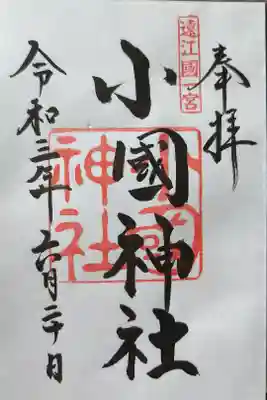 奉拝
遠江國一宮
小國神社
小國神社
令和三年六月二十日